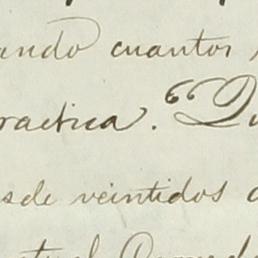 ando cuantos
ractica. "Du
sde veintidos